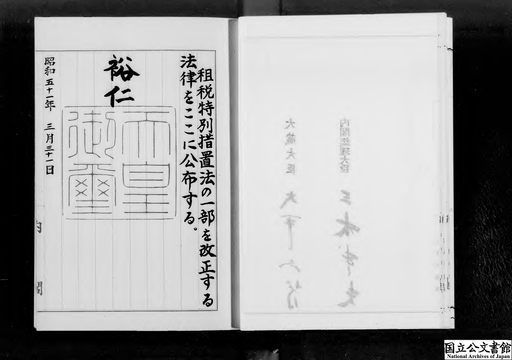 租税特別措置法の一部を改正する
法律をここに公布する。
裕仁
天皇
御璽
昭和五十一年三月三十一日
内閣
内閣総理大臣
大蔵大臣
国立公文書館
National Archives of Japan